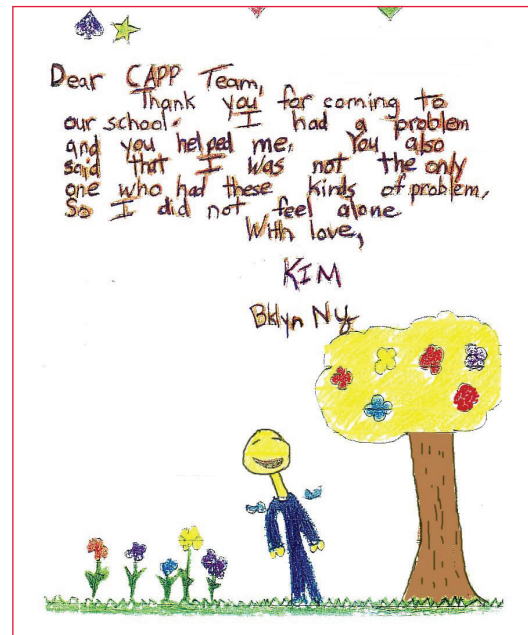 Dear CAPP Team,
Thank you for coming to
our school. I had a problem
and you helped me. You also
said that I was not the only
one who had these kinds of problem,
So I did not feel alone
With love,
KIM
Bklyn Ny